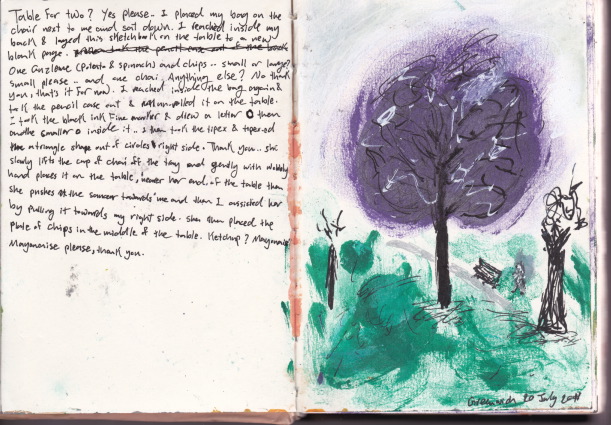 Table for two? Yes please.. I placed my bag on the
chair next to me and sat down. I reached inside my
back & layed this sketchbook on the table to a new
blank page. took the pencil case out of the back
One Gozleme (Potato & spinach) and chips.. small or large?
Small please.. and one chair. Anything else? No thank
you, that's it for now. I reached inside the bag again &
took the pencil case out & unrolled it on the table.
I took the black ink fine marker & drew a letter O then
another smaller o inside it.. I then took the tipex & tipexed
a triangle shape out of circles right side. Thank you.. she
slowly lifts the cup of chai off the tray and gently with wobbly
hand places it on the table, nearer her end of the table then
she pushes the saucer towards me and then I assisted her
by pulling it towards my right side. She then placed the
plate of chips in the middle of the table. Ketchup? Mayonnaise?
Mayonnaise please, thank you.
Greenwich 20 July 2011